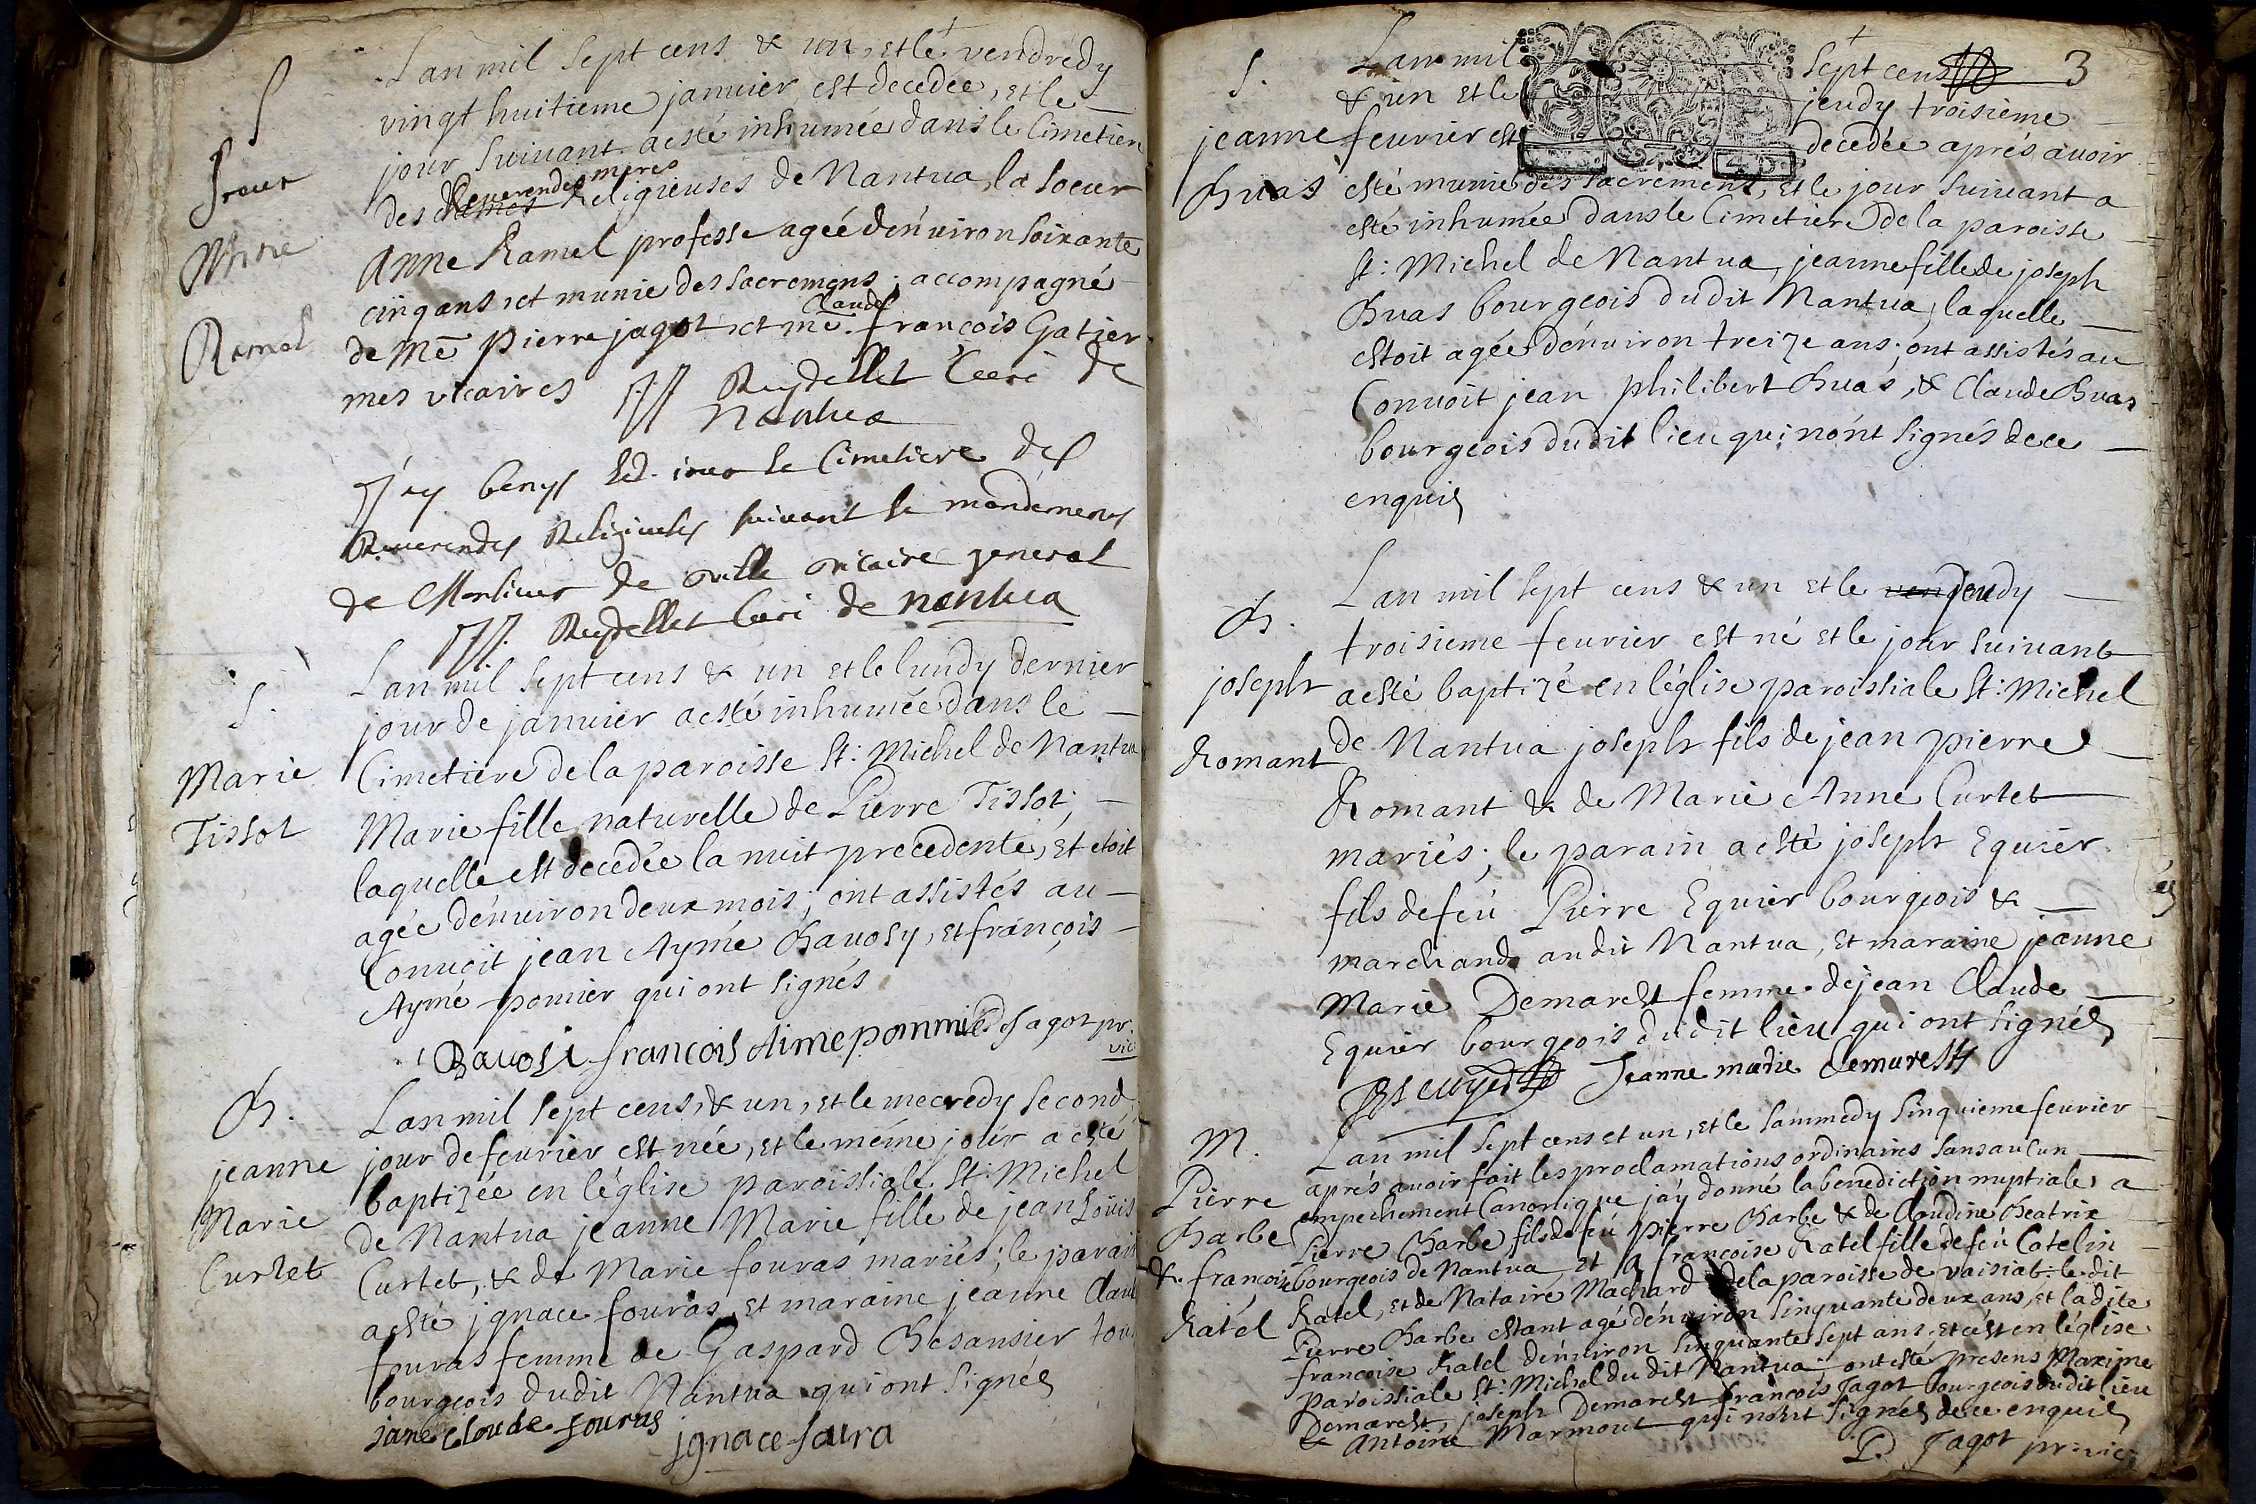 S
Soeur
Anne
Ramel
Lan mil sept cens & un, et le vendredy
vingt huitieme janvier est decedée, et le
jour suivant a esté inhumée dans le Cimetiere
Reverendes meres
des dames Religieuses de Nantua, la Soeur
Anne Ramel professe agée d'environ soixante
cinq ans, et munie des sacremens; accompagné
Claude
de Mē Pierre jagot et mē françois Gatier
mes vicaires Ruydellet Curé de
Nantua
J'ay benys led. jour le Cimetiere des
Reverendes Religieuses suivant le mandement
de Monsieur de ville vicaire general
Ruydellet Curé de nantua
S.
Marie
Tissot
Lan mil sept cens & un et le lundy dernier
jour de janvier a esté inhumée dans le
Cimetiere de la paroisse St: Michel de Nantua
Marie fille naturelle de Pierre Tissot;
laquelle est decedée la nuit precedente, et etoit
agée d'environ deux mois; ont assistés au
Convoit jean Aymé Bavosy, et françois
Aymé pomier qui ont signés
Bavosi françois Aime pommié Jagot pr. vic
B.
jeanne
Marie
Curtet
Lan mil sept cens, & un, et le mecredy second
jour de fevrier est née, et le méme jour a esté
baptizée en l'église paroissiale St: Michel
de Nantua jeanne Marie fille de jean Loüis
Curtet, & de Marie fouras mariés; le parain
a esté jgnace fouras, et maraine jeanne Claude
fouras femme de Gaspard Besansier tous
bourgeois dudit Nantua qui ont signés
jane cloude fouras
jgnace foura
3
S.
jeanne
Buas
Lan mil sept cens
& un et le jeudy troisieme
fevrier est decedée aprés avoir
esté munie des sacremens, et le jour suivant a
esté inhumée dans le Cimetiere de la paroisse
St: Michel de Nantua, jeanne fille de joseph
Buas bourgeois dudit Nantua, laquelle
estoit agée d'environ treize ans; ont assistés au
Convoit jean philibert Buas, & Claude Buas
bourgeois dudit lieu qui nónt signés de ce
enquis
B.
joseph
Romant
Lan mil sept cens & un et le ven jeudy
troisieme fevrier est né et le jour suivant
a esté baptizé en l'église paroissiale St: Michel
de Nantua joseph fils de jean pierre
Romant & de Marie Anne Curtet
mariés; le parain a esté joseph Equier
fils de feu Pierre Equier bourgeois &
marchand audit Nantua, et maraine jeanne
Marie Demarest femme de jean Claude
Equier bourgeois dudit lieu qui ont signés
Jeanne marie demarest
M.
Pierre
Barbe
& françoise
Ratel
Lan mil sept cens et un, et le sammedy sinquieme fevrier
aprés avoir fait les proclamations ordinaires sans aucun
empechement Canonique j'ay donné la benediction nuptiale, a
Pierre Barbe fils de feu Pierre Barbe & de Claudine Beatrix
bourgeois de Nantua, et a françoise Ratel fille de feu Cotelin
Ratel, et de Nataire Machard de la paroisse de vaisiat: le dit
Pierre Barbe estant agé d'environ sinquante deux ans, et ladite
françoise Ratel d'environ sinquante sept ans, et cést en l'église
paroissiale St: Michel du dit Nantua; ont esté presens Maxime
Demarest, joseph Demarest françois Jagot bourgeois dudit lieu
& Antoine Marmout qui nónt signés de ce enquis
P. Jagot pr: vic: